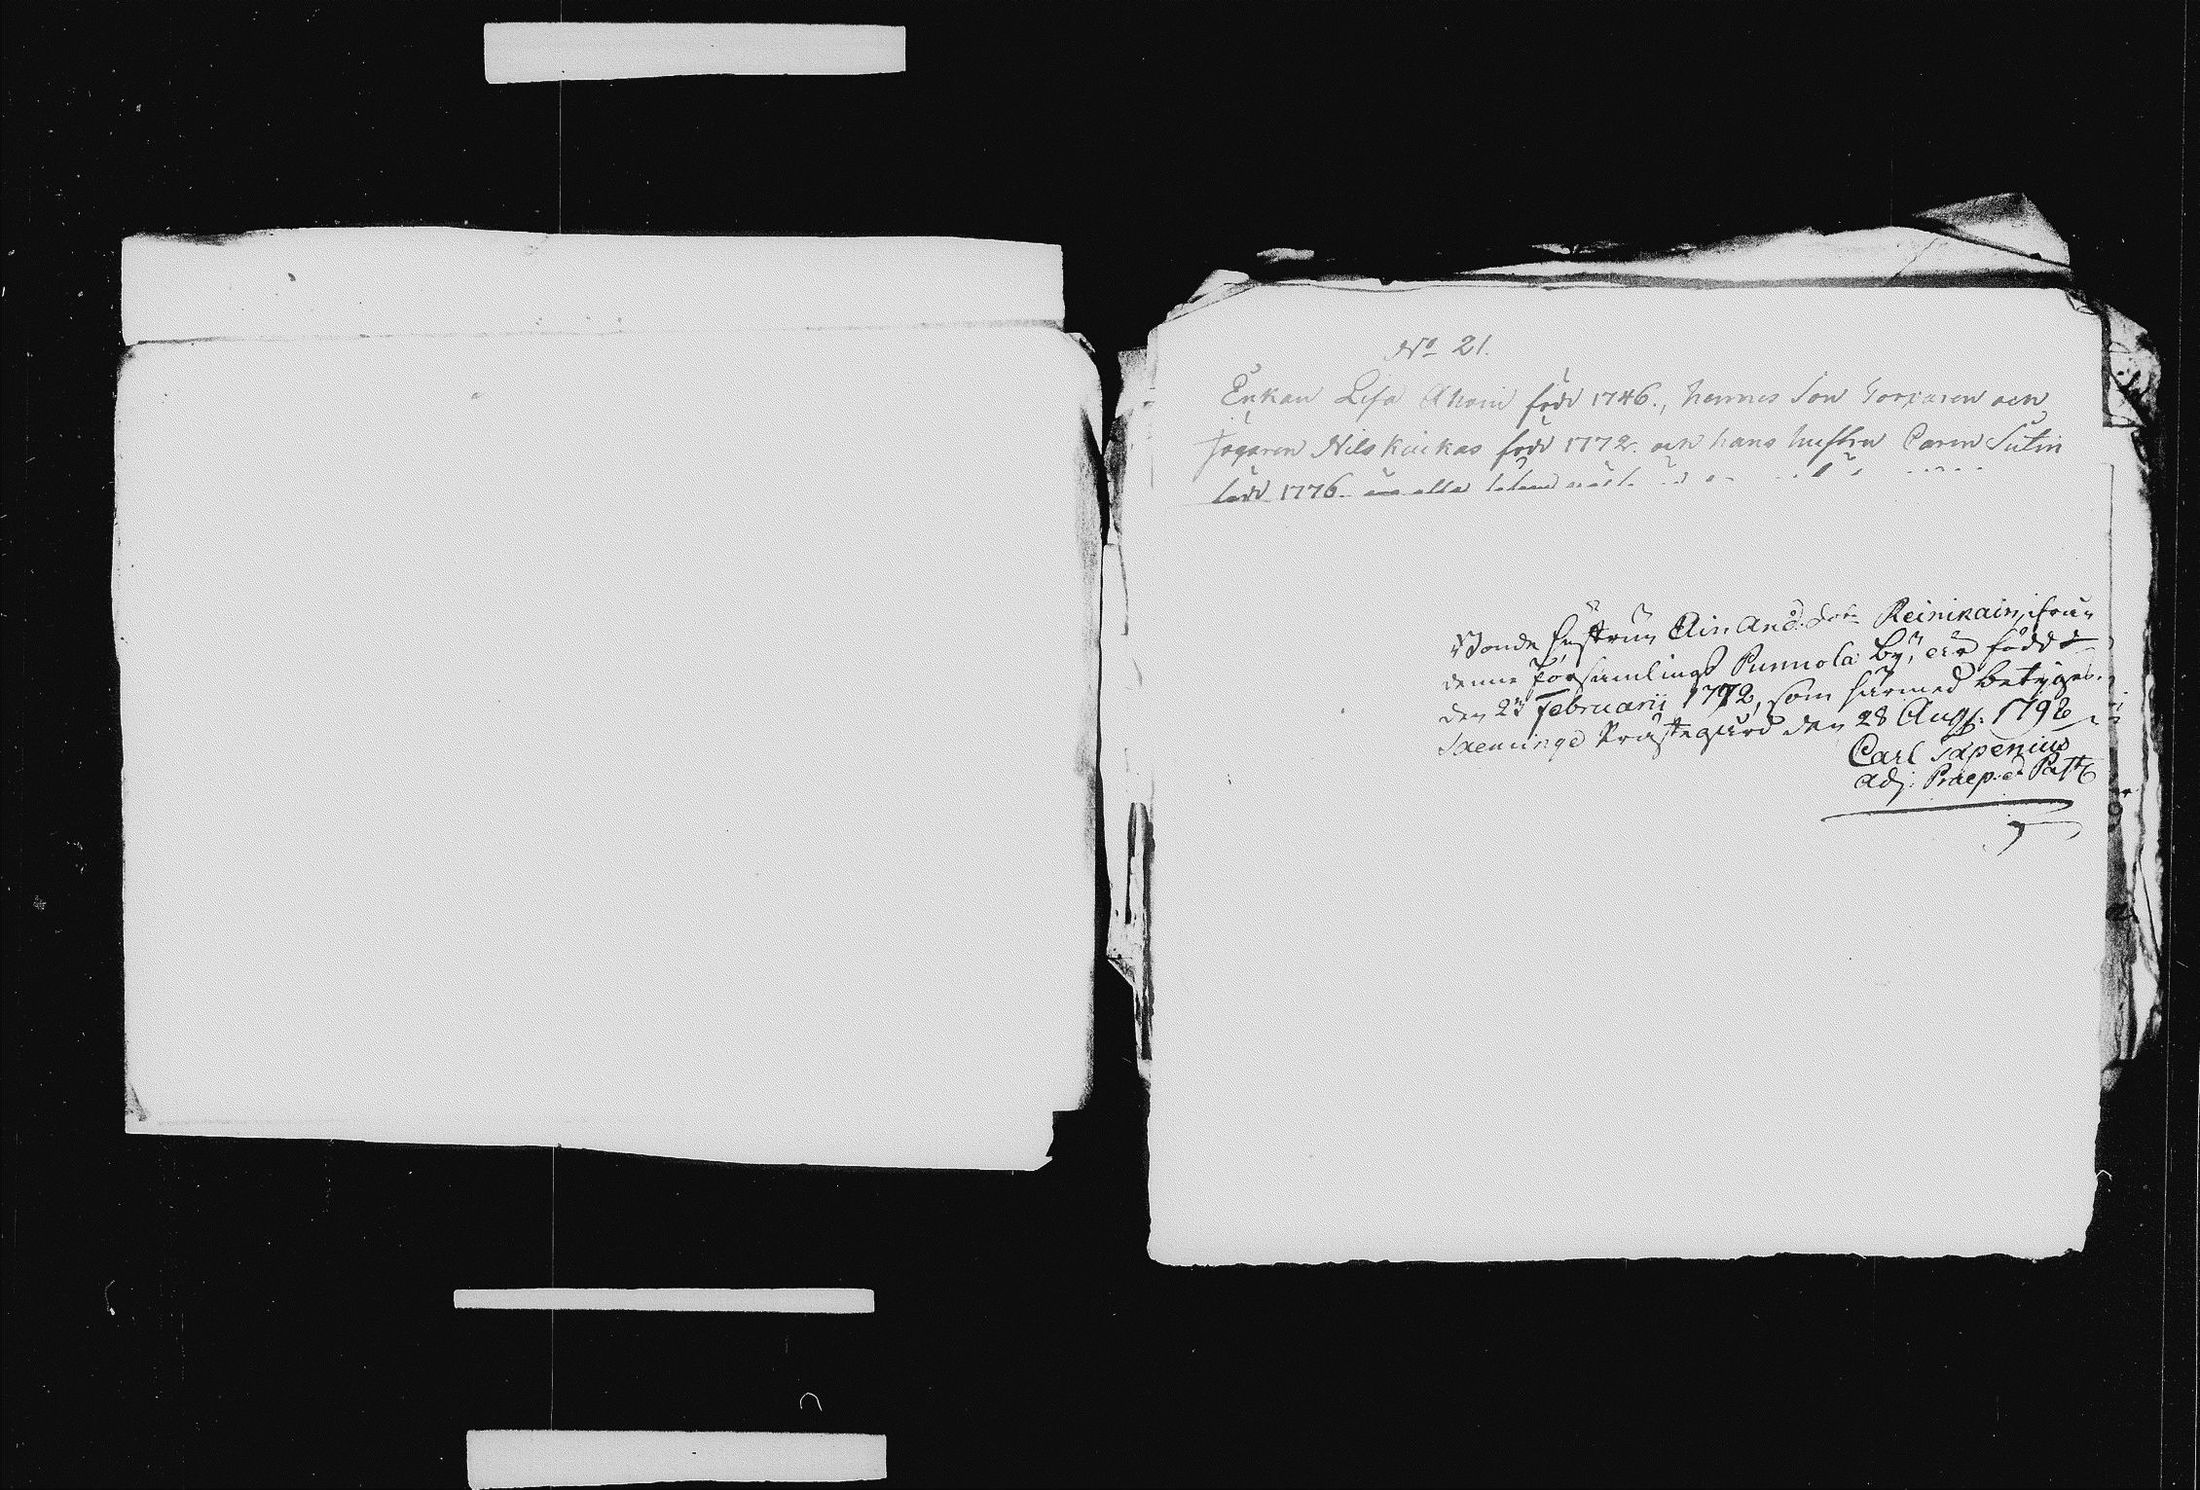 No 21.
Enkan Lisa Ahoin född 1746., hennes Son Torparen och
Jägaren Nils Kiukas född 1772. och hans hustru Caren Sutin
född 1776. alla
Bonde hustrun Ain And: dotr Reinikain, ifrån
denne Församlings Punnola By, är född
den 23 Februarii 1772, som härmed betyges.
Saeminge Prästegård den 28 Aug: 1798
Carl Tapenius
Adj: Praep: et Past